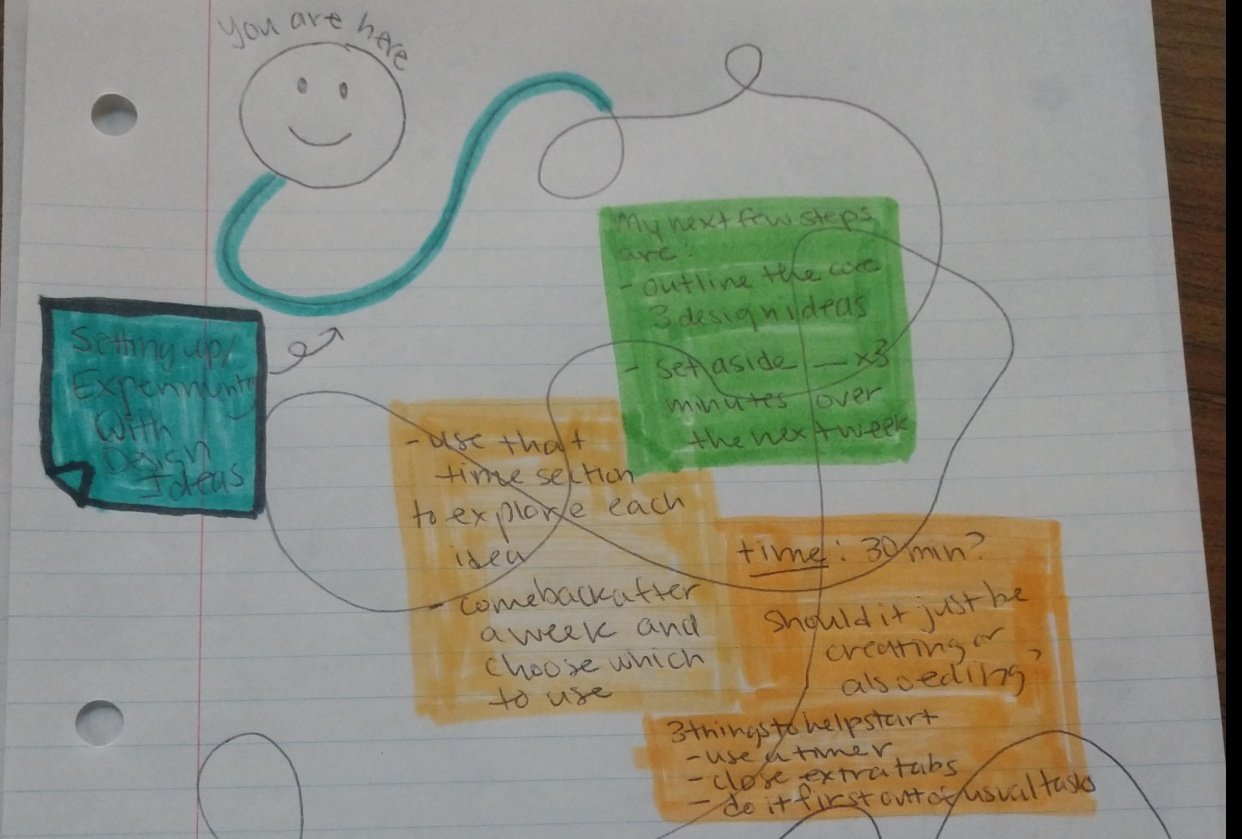 You are here
Setting up/
Experimenting
With
Design
Ideas
My next few steps
are:
- outline the core
3 design ideas
- set aside __ x3
minutes over
the next week
- use that
time section
to explore each
idea
- come back after
a week and
choose which
to use
time: 30 min?
Should it just be
creating or
also editing?
3 things to help start
- use a timer
- close extra tabs
- do it first out of usual tasks